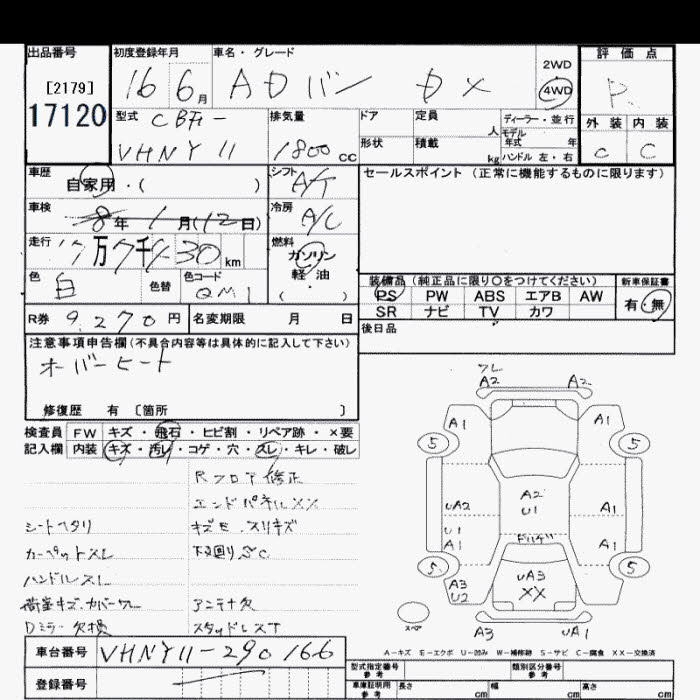 出品番号
[2179]
17120
初度登録年月
16 6月
車名・グレード
ADバン DX
2WD
4WD
評価点
R
外装 内装
C C
型式
CBF-
VHNY11
排気量
1800cc
ドア
形状
定員
人
積載
kg
ディーラー・並行
モデル
年式 年
ハンドル 左・右
車歴
自家用・( )
シフト
A/T
セールスポイント(正常に機能するものに限ります)
車検
8年1月(12日)
冷房
A/C
走行
燃料
ガソリン
軽・油
( )
色
白
色替
色コード
QM1
装備品(純正品に限り○をつけてください)
PS PW ABS エアB AW
SR ナビ TV カワ
新車保証書
有・無
R券 9,270円
名変期限 月 日
後日品
注意事項申告欄(不具合内容等は具体的に記入して下さい)
オーバーヒート
修復歴 有 〔箇所 〕
検査員 FW キズ・飛石・ヒビ割・リペア跡・×要
記入欄 内装 キズ・汚レ・コゲ・穴・スレ・キレ・破レ
Rフロア修正
エンドパネルXX
シートヘタリ
キズモ.スリキズ
カーペットスレ
下回りS.C
ハンドルスレ
荷室キズ.カバーワレ
アンテナ欠
Dミラー欠損
スタッドレスT
車台番号 VHNY11-290166
登録番号
ワレ
A2 A2
A1 A1
5 5
A2
U1
UA2
U1
A1
A1
A1
5 5
UA3
XX
A3
U2
スペア
A3 UA1
A-キズ E-エクボ U-凹み W-補修跡 S-サビ C-腐食 XX-交換済
型式指定番号
参考
類別区分番号
参考
車庫証明用
参考
長さ cm 幅 cm 高さ cm